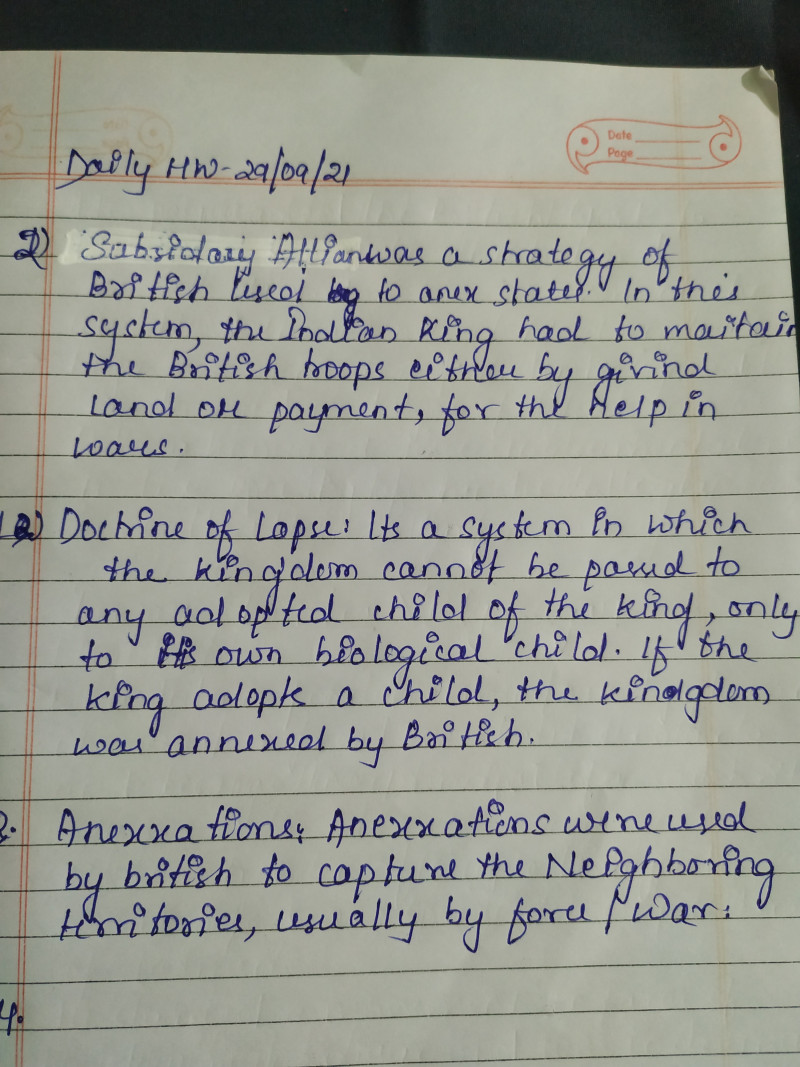 Date
Page
Daily HW-29/09/21
2) Subsidary Allianwas a strategy of
British used by to anex states. In this
system, the Indian King had to maitain
the British troops either by givind
Land or payment, for the Help in
wars.
2) Doctrine of Lapse: Its a system in which
the kingdom cannot be passed to
any adopted child of the king, only
to its own biological child. If the
king adopts a child, the kindgdom
was annexed by British.
3. Anexxations: Anexxations were used
by british to capture the Neighboring
territories, usually by force / war.
4.